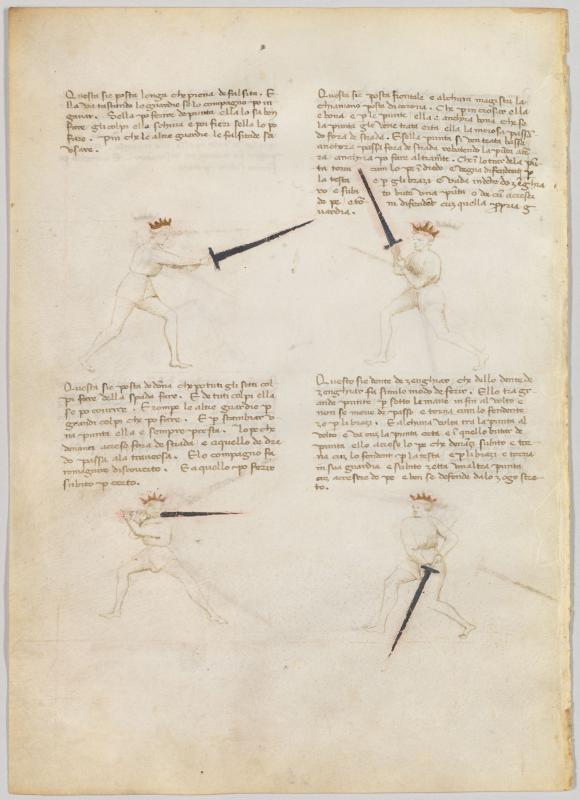 Questa sie posta longa ch'e piena de falsita. E
lla va tastando le guardie se lo compagno po in
ganar. Sella po ferire de punta ella lo sa ben
fare gli colpi ello schiva e poi fieri sello lo po
fare. Piu che le altre guardie le falsitade so
usare.
Questa sie posta frontale e alchun magistri la
chiamano posta di corona. Che p incrosar ella
e bona e p le punte ella e anchora bona che se
la punta gle ven trata erta ella la incrosa passan
do fora de strada. E s'ella punta si ven trata bassa
anchora passa fora de strada rebatendo la punta
ra anchora po fare altramente. Che in lo trar dela pun
ta torni cum lo pe in dredo e vegna da fendente p
la testa e p gli brazi e vada in dente de zenghia
ro e subi to butti una punta o doe cum acresser
de pe e to rni de fendente cum quella propria g
uardia.
Questa sie posta de dona che po tuti gli setti col
pi fare della spada fare. E de tuti colpi ella
se po covrire. E rompe le altre guardie p
grandi colpi che po fare. E p scambiar u
na punta ella e sempre presta. Lo pe che
denanci acresse fora de strada e aquello de dre
do passa ala traversa. E lo compagno fa
remagnire discoverto. E a quello po ferire
subito p certo.
Questo sie dente de zenghiar che dello dente de
zenghiar fa simile modo de ferir. Ello tra gr
ande punte p sotto le mane in fin al volto e
non se move de passo e torna cum lo fendente
zo p li brazi. E alchuna volta tra la punta al
volto e va cum la punta erta e in quello butar de
punta ello acresse lo pe ch'e denanzi subito e tor
na cum lo fendente p la testa e p li brazi e torna
in sua guardia e subito zetta un altra punta
cum acressere de pe e ben se defende dalo zogo stre
to.